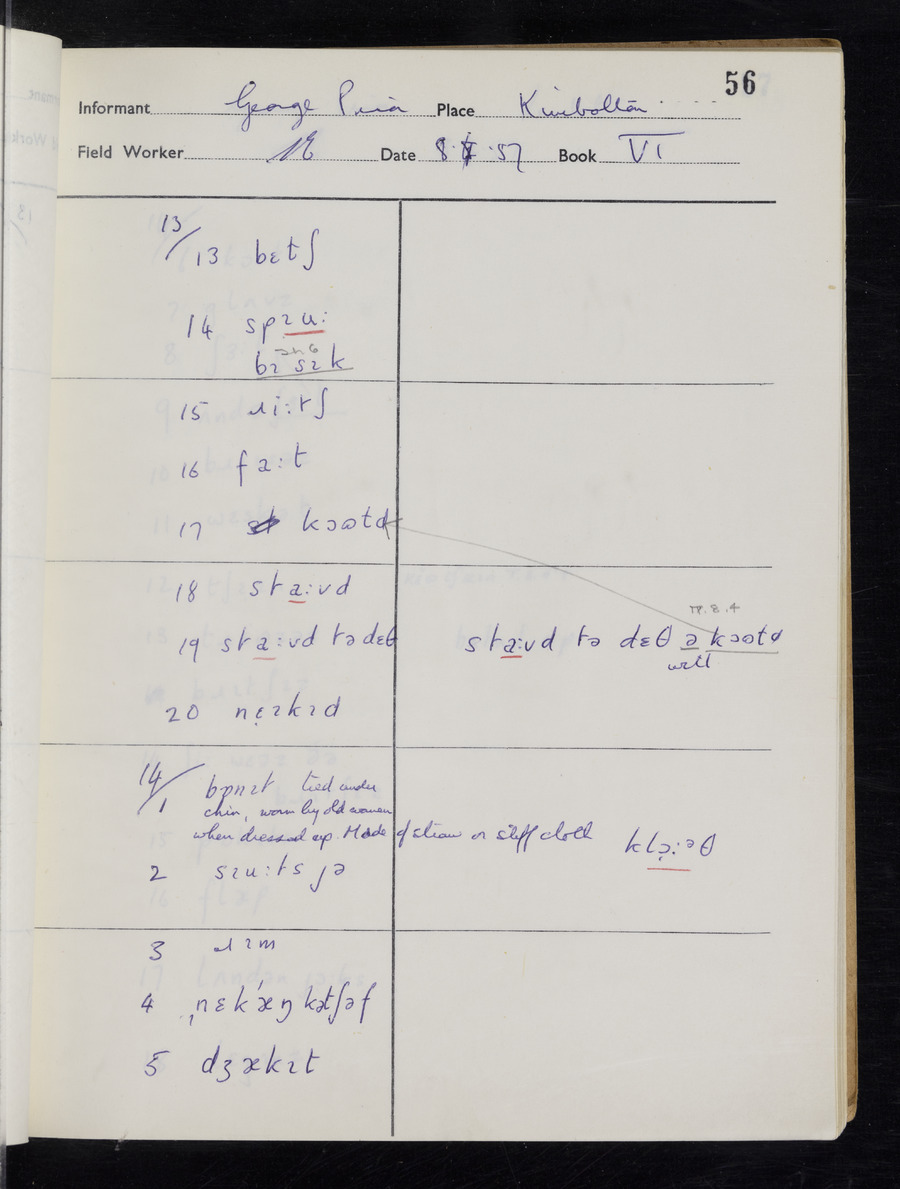 56
Informant George Prior Place Kimbolton
Field Worker Date 8.X.57 Book VI
13/13 bɛtʃ
14 spɪu:
bɪ sɪk
15 ɹi:tʃ
16 fa:t
17 kɔɷtd
18 sta:vd
19 sta:vd tə dɛθ sta:vd tə dɛθ ə kɔɷtd
well
20 nɛɪkɪd
14/1 bɒnɪt tied under
chin, worn by old women
when dressed up. Made of straw or stiff cloth klɔ̣:əθ
2 sɪu:ts jə
3 ɹɪm
4 nɛkæŋkətʃəf
5 dʒækɪt